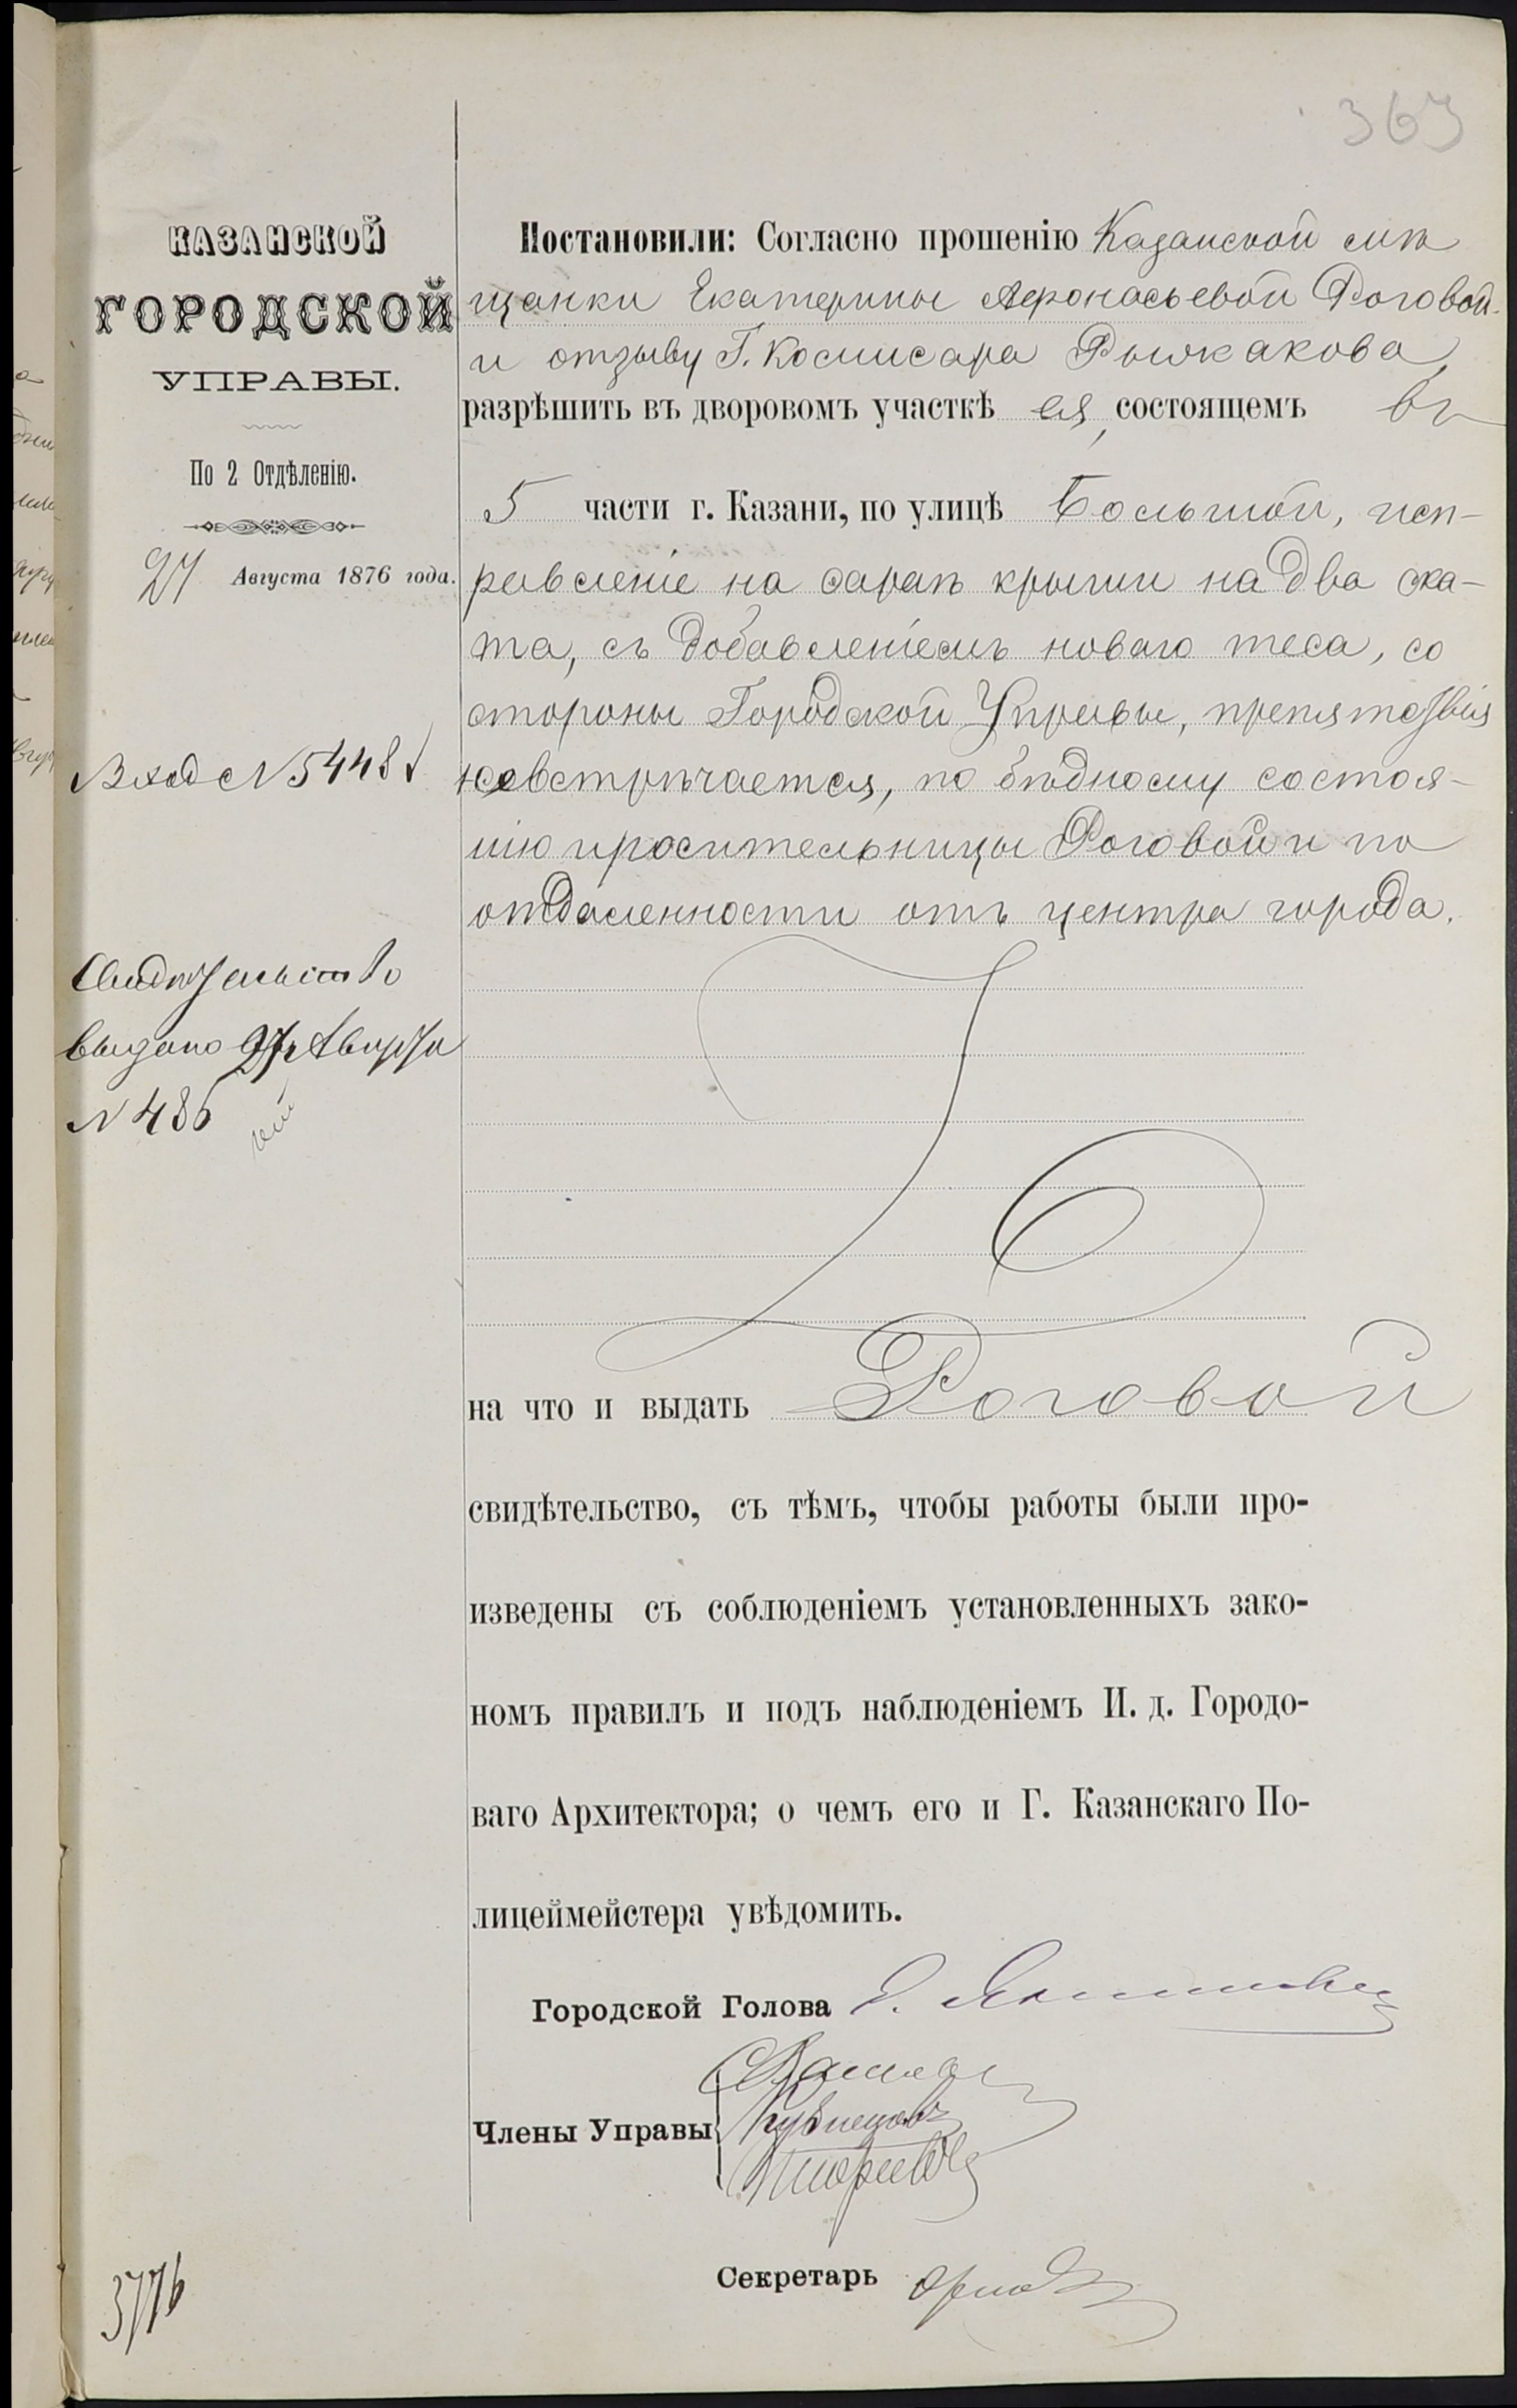 367
КАЗАНСКОЙ
ГОРОДСКОЙ
УПРАВЫ.
По 2 Отдѣленію.
27 Августа 1876 года.
Вход №5448
Свидѣтельство
выдано 27 Августа
№ 486
3776
Постановили: Согласно прошенію Казанской мѣ
щанки Екатерины Афонасьевой Роговой
и отзыву Г. Комисара Рыжакова,
разрѣшить въ дворовомъ участкѣ ея, состоящемъ въ
5 части г. Казани, по улицѣ Большой, исп-
равленіе на сараѣ крыши на два ска-
та, съ добавленіемъ новаго теса, со
стороны Городской Управы, препятствія
невстрѣчается, по бѣдному состоя-
нію просительницы Роговой и по
отдаленности отъ центра города.
на что и выдать Роговой
свидѣтельство, съ тѣмъ, чтобы работы были про-
изведены съ соблюденіемъ установленныхъ зако-
номъ правилъ и подъ наблюденіемъ И. д. Городо-
ваго Архитектора; о чемъ его и Г. Казанскаго По-
лицеймейстера увѣдомить.
Городской Голова
Члены Управы
Кузнецовъ
Секретарь